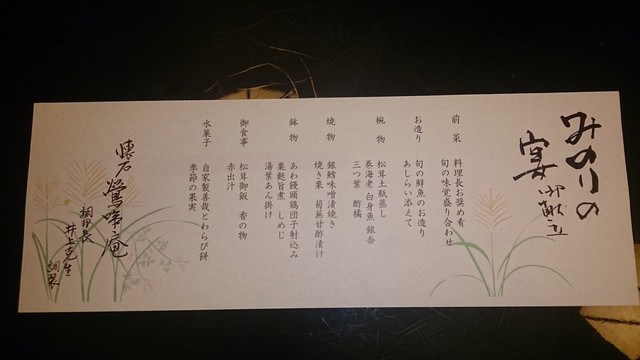 みのりの
宴 御献立
前菜 料理長お奨め肴
旬の味覚盛り合わせ
お造り 旬の鮮魚のお造り
あしらい添えて
椀物 松茸土瓶蒸し
巻海老 白身魚 銀杏
三つ葉 酢橘
焼物 銀鱈味噌漬焼き
焼き栗 菊蕪甘酢漬け
鉢物 あわ饅頭鶏団子射込み
栗麩旨煮 しめじ
湯葉あん掛け
御食事 松茸御飯 香の物
赤出汁
水菓子 自家製善哉とわらび餅
季節の果実
懐石 鶯啼庵
調理長
井上克生